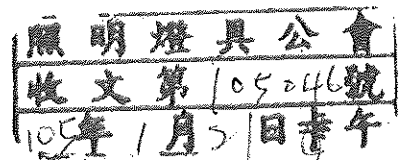 照明燈具公會
收文第105046號
105年1月21日 午